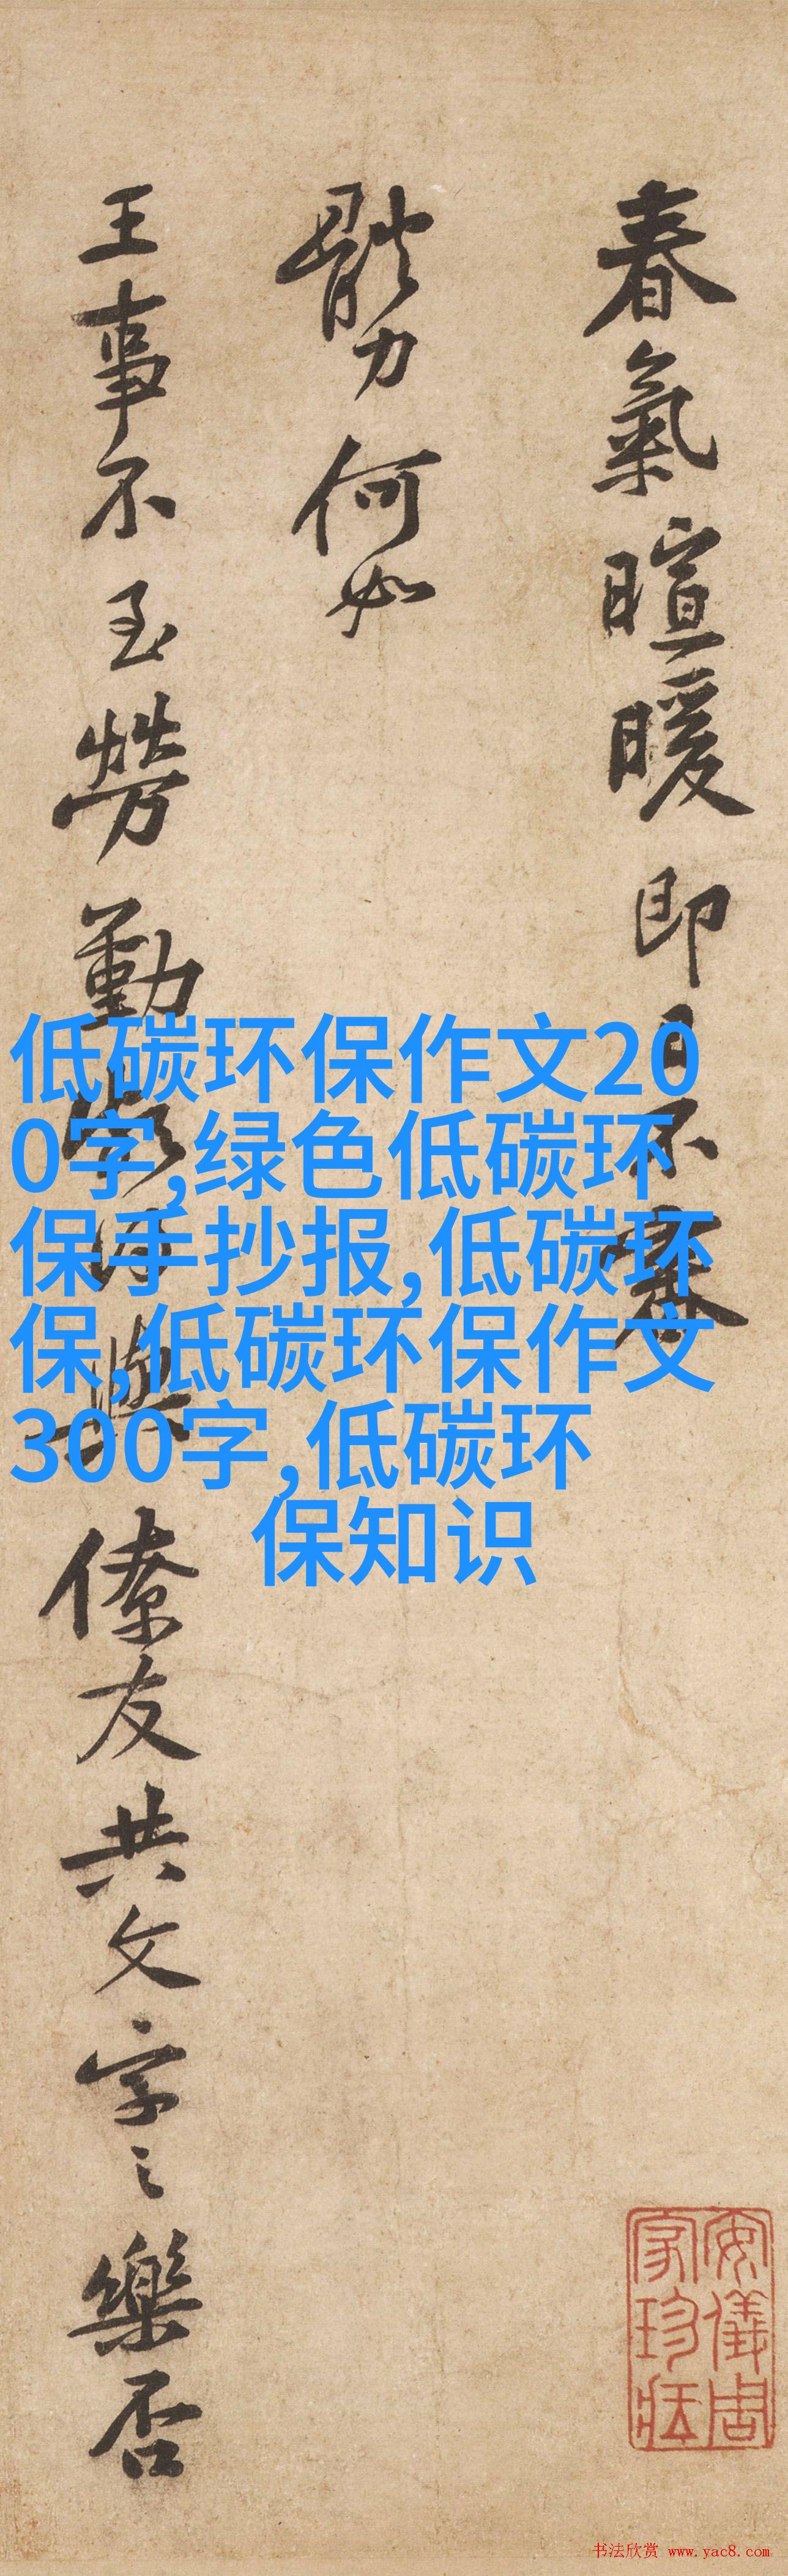 春氣暄暖即日不審
體力何如
王事不至勞勤頗得與僚友共文字之樂否
低碳环保作文20
0字,绿色低碳环
保手抄报,低碳环
保,低碳环保作文
300字,低碳环
保知识
安儀周
家珍藏
书法欣赏 www.yac8.com